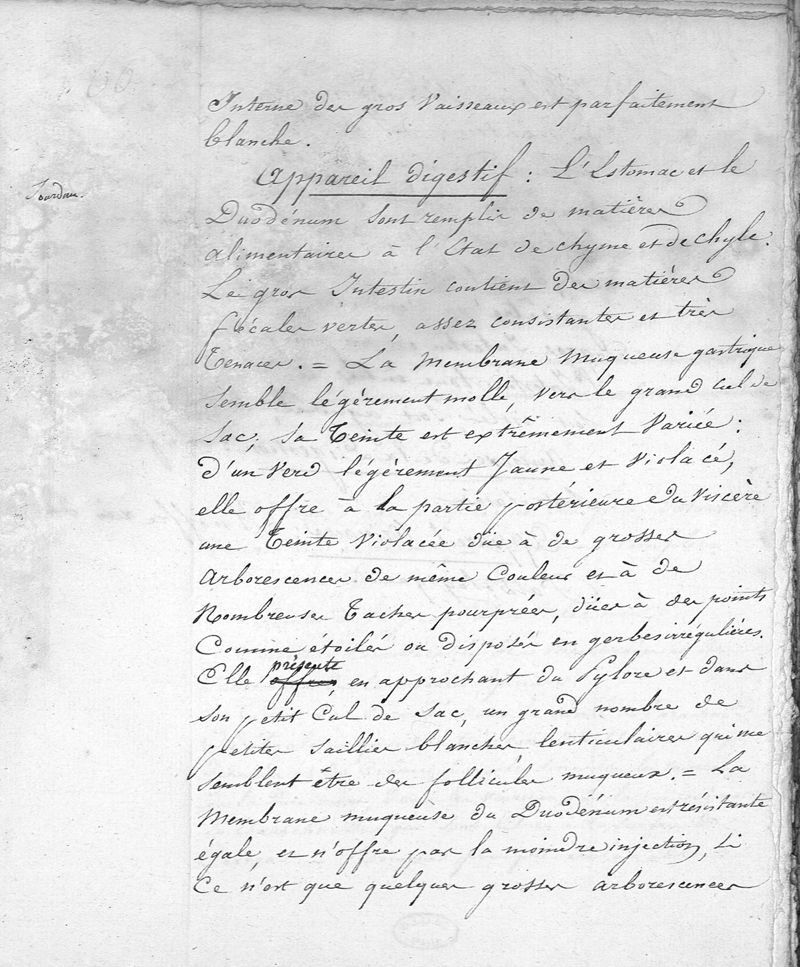 Interne des gros Vaisseaux est parfaitement
blanche.
Appareil digestif : L'Estomac et le
Duodénum sont remplis de matières
alimentaires à l'Etat de chyme et de chyle.
Le gros Intestin contient des matières
fécales vertes, assez consistantes et très
tenaces. = La Membrane Muqueuse gastrique
semble légèrement molle, vers le grand cul de
sac; sa teinte est extrêmement variée :
d'un verd légèrement Jaune et violacé,
elle offre à la partie postérieure du viscère
une teinte violacée düe à de grosses
arborescences de même couleur et à de
nombreuses taches pourprées, dües à des points
comme étoilés ou disposés en gerbes irrégulières.
présente
Elle offre, en approchant du Pylore et dans
son petit Cul de sac, un grand nombre de
petites saillies blanches lenticulaires qui me
semblent être des follicules muqueux. = La
Membrane muqueuse du Duodénum est résistante
égale, et n'offre pas la moindre injection, si
Ce n'est que quelques grosses arborescences